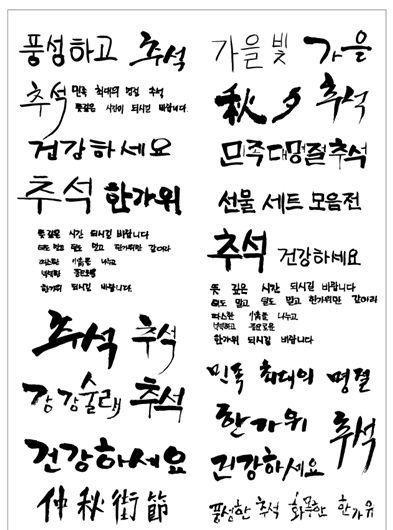 풍성하고 추석
추석 민족 최대의 명절 추석
뜻깊은 시간이 되시길 바랍니다.
건강하세요
추석 한가위
뜻 깊은 시간 되시길 바랍니다
더도 말고 덜도 말고 한가위만 같아라
따스한 나누고
넉넉한
한가위 되시길 바랍니다.
추석 추석
강강술래 추석
건강하세요
仲秋街節
가을빛 가을
秋夕 추석
민족대명절추석
선물 세트 모음전
추석 건강하세요
뜻 깊은 시간 되시길 바랍니다
더도 말고 덜도 말고 한가위만 같아라
따스한 나누고
넉넉하고
한가위 되시길 바랍니다
민족 최대의 명절
한가위 추석
건강하세요
풍성한 추석 한가위